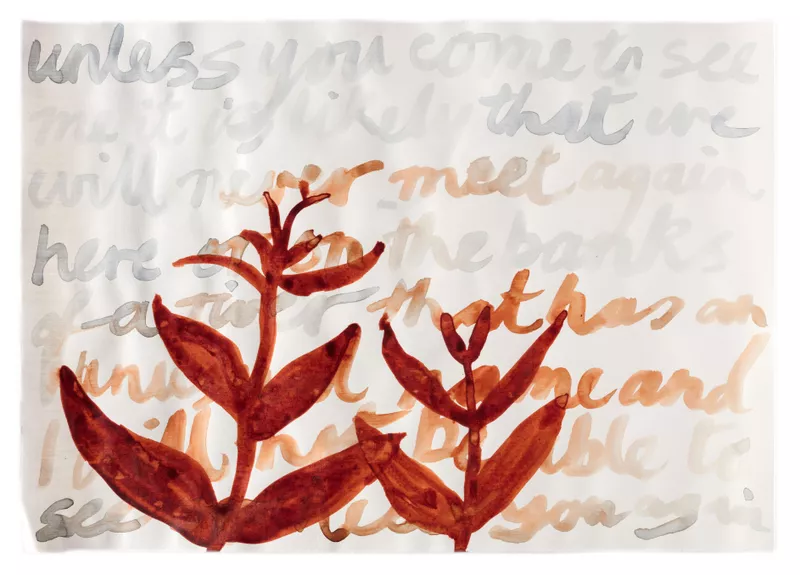 unless you come to see
me it is likely that we
will never meet again
here or on the banks
of a river that has an
unusual name and
I will not be able to
see you again